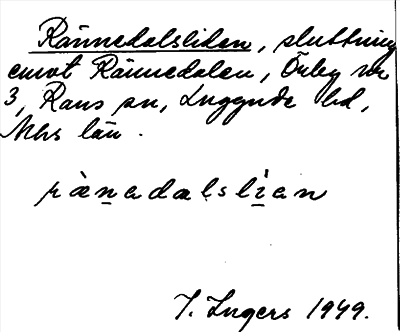 Rännedalsliden, sluttning
emot Rännedalen, Örby nr
3, Raus sn, Luggude hd,
Mhs län.
rànadalslìan
I. Ingers 1949.